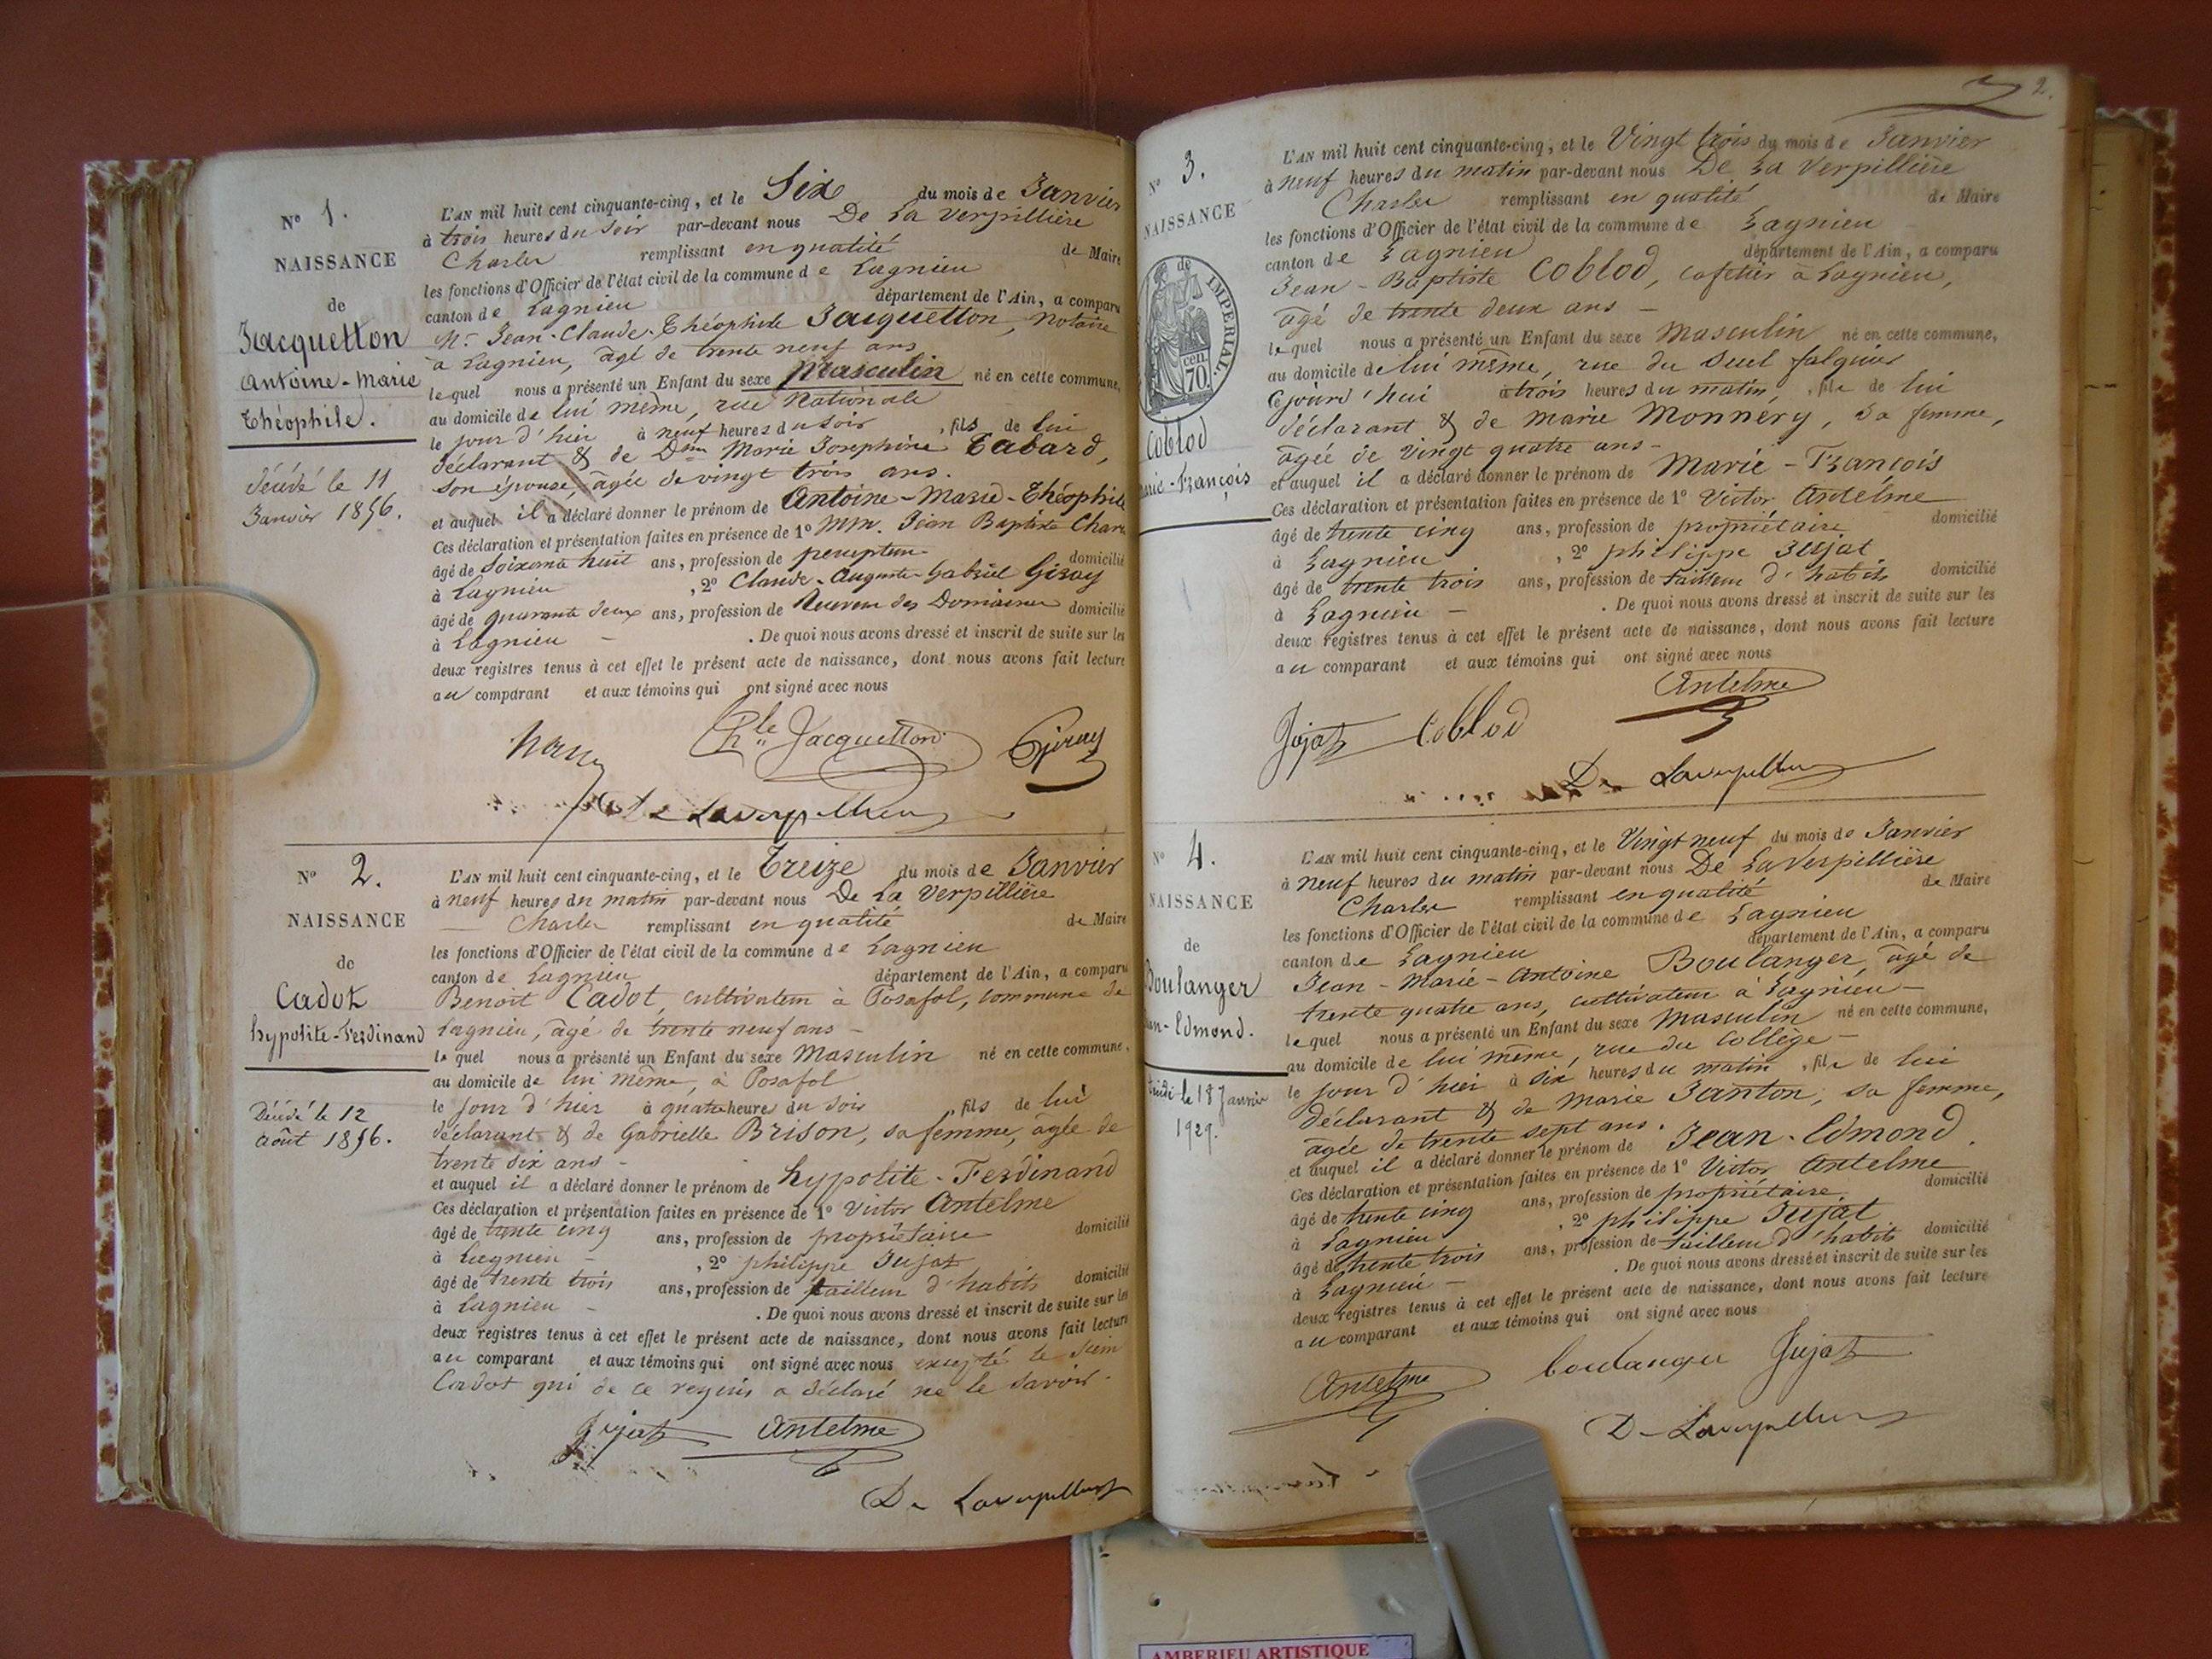 N° 1.
NAISSANCE
de
Jacquetton
Antoine-Marie
Théophile.
Décédé le 11
Janvier 1856.
L'AN mil huit cent cinquante-cinq, et le Six du mois de Janvier
à trois heures du soir par-devant nous De La Verpillière
Charles remplissant en qualité de Maire
les fonctions d'Officier de l'état civil de la commune de Lagnieu
canton de Lagnieu département de l'Ain, a comparu
Mr Jean-Claude-Théophile Jacquetton, notaire
à Lagnieu, âgé de trente neuf ans
lequel nous a présenté un Enfant du sexe Masculin né en cette commune,
au domicile de lui même, rue Nationale
le jour d'hier à neuf heures du soir, fils de lui
déclarant & de Dme Marie Josephine Tabard,
son épouse, âgée de vingt trois ans.
et auquel il a déclaré donner le prénom de Antoine-Marie-Théophile
Ces déclaration et présentation faites en présence de 1° MM. Jean Baptiste
âgé de soixante huit ans, profession de percepteur domicilié
à Lagnieu, 2° Claude-Auguste-Gabriel Giray
âgé de quarante deux ans, profession de Receveur des Domaines domicilié
à Lagnieu - . De quoi nous avons dressé et inscrit de suite sur les
deux registres tenus à cet effet le présent acte de naissance, dont nous avons fait lecture
au comparant et aux témoins qui ont signé avec nous
Thle Jacquetton Giray
De Laverpilliere
N° 2.
NAISSANCE
de
Cadot
hypolite-Ferdinand
Décédé le 12
août 1856.
L'AN mil huit cent cinquante-cinq, et le Treize du mois de Janvier
à neuf heures du matin par-devant nous De La Verpillière
Charles remplissant en qualité de Maire
les fonctions d'Officier de l'état civil de la commune de Lagnieu
canton de Lagnieu département de l'Ain, a comparu
Benoit Cadot, cultivateur à Posafol, commune de
Lagnieu, âgé de trente neuf ans -
lequel nous a présenté un Enfant du sexe Masculin né en cette commune,
au domicile de lui même, à Posafol
le jour d'hier à quatre heures du soir, fils de lui
déclarant & de Gabrielle Brison, sa femme, âgée de
trente six ans -
et auquel il a déclaré donner le prénom de hypolite-Ferdinand
Ces déclaration et présentation faites en présence de 1° Victor Antelme
âgé de trente cinq ans, profession de propriétaire domicilié
à Lagnieu - , 2° philippe Jujat
âgé de trente trois ans, profession de tailleur d'habits domicilié
à Lagnieu - . De quoi nous avons dressé et inscrit de suite sur les
deux registres tenus à cet effet le présent acte de naissance, dont nous avons fait lecture
au comparant et aux témoins qui ont signé avec nous excepté le sieur
Cadot qui de ce requis a déclaré ne le savoir.
Jujat Antelme
De Laverpilliere
2.
N° 3.
NAISSANCE
de
IMPERIAL.
70 cen.
Coblod
Marie-François
L'AN mil huit cent cinquante-cinq, et le Vingt trois du mois de Janvier
à neuf heures du matin par-devant nous De La Verpillière
Charles remplissant en qualité de Maire
les fonctions d'Officier de l'état civil de la commune de Lagnieu
canton de Lagnieu département de l'Ain, a comparu
Jean-Baptiste Coblod, cafetier à Lagnieu,
âgé de trente deux ans -
lequel nous a présenté un Enfant du sexe Masculin né en cette commune,
au domicile de lui même, rue du
Cejourd'hui à trois heures du matin, fils de lui
déclarant & de Marie Monnery, sa femme,
âgée de vingt quatre ans -
et auquel il a déclaré donner le prénom de Marie-François
Ces déclaration et présentation faites en présence de 1° Victor Antelme
âgé de trente cinq ans, profession de propriétaire domicilié
à Lagnieu, 2° philippe Jujat
âgé de trente trois ans, profession de tailleur d'habits domicilié
à Lagnieu - . De quoi nous avons dressé et inscrit de suite sur les
deux registres tenus à cet effet le présent acte de naissance, dont nous avons fait lecture
au comparant et aux témoins qui ont signé avec nous
Antelme
Jujat Coblod
De Laverpilliere
N° 4.
NAISSANCE
de
Boulanger
Jean-Edmond.
Décédé le 18 Janvier
1929.
L'AN mil huit cent cinquante-cinq, et le Vingt neuf du mois de Janvier
à neuf heures du matin par-devant nous De La Verpillière
Charles remplissant en qualité de Maire
les fonctions d'Officier de l'état civil de la commune de Lagnieu
canton de Lagnieu département de l'Ain, a comparu
Jean-Marie-Antoine Boulanger, âgé de
trente quatre ans, cultivateur à Lagnieu -
lequel nous a présenté un Enfant du sexe Masculin né en cette commune,
au domicile de lui même, rue du College -
le jour d'hier à six heures du matin, fils de lui
déclarant & de Marie Janton, sa femme,
âgée de trente sept ans.
et auquel il a déclaré donner le prénom de Jean-Edmond.
Ces déclaration et présentation faites en présence de 1° Victor Antelme
âgé de trente cinq ans, profession de propriétaire domicilié
à Lagnieu, 2° philippe Jujat
âgé de trente trois ans, profession de tailleur d'habits domicilié
à Lagnieu - . De quoi nous avons dressé et inscrit de suite sur les
deux registres tenus à cet effet le présent acte de naissance, dont nous avons fait lecture
au comparant et aux témoins qui ont signé avec nous
Antelme boulanger Jujat
De Laverpilliere
AMBERIEU ARTISTIQUE